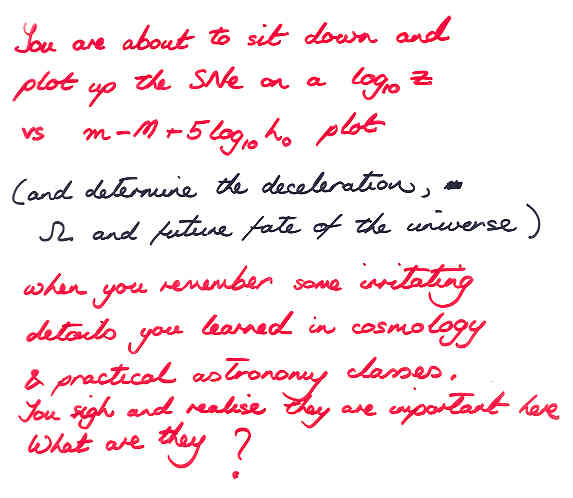 You are about to sit down and
plot up the SNe on a log₁₀ z
vs m-M+5log₁₀ h₀ plot
(and determine the deceleration,
Ω and future fate of the universe)
when you remember some irritating
details you learned in cosmology
& practical astronomy classes.
You sigh and realise they are important here
What are they ?